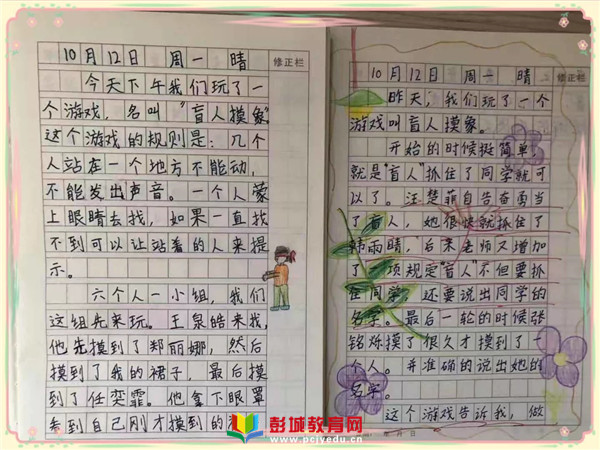 10月12日 周一 晴
修正栏
今天下午我们玩了一
个游戏，名叫“盲人摸象”
这个游戏的规则是：几个
人站在一个地方不能动，
不能发出声音。一个人蒙
上眼睛去找，如果一直找
不到可以让站着的人来提
示。
六个人一小组，我们
这组先来玩。王泉皓来我，
他先摸到了郑丽娜，然后
摸到了我的裙子，最后摸
到了任奕霏。他拿下眼罩
看到自己刚才摸到的
10月12日 周一 晴
修正栏
昨天，我们玩了一个
游戏叫盲人摸象。
开始的时候挺简单，
就是“盲人”抓住了同学就可
以了。汪楚菲自告奋勇当
了盲人，她很快就抓住了
韩雨晴，后来老师又增加
了一项规定“盲人”不但要抓
住同学，还要说出同学的
名字。最后一轮的时候张
铭烁摸了很久才摸到了一
个人。并准确的说出她的
名字。
这个游戏告诉我，做
年 月 日
彭城教育网
www.pcjyedu.cn